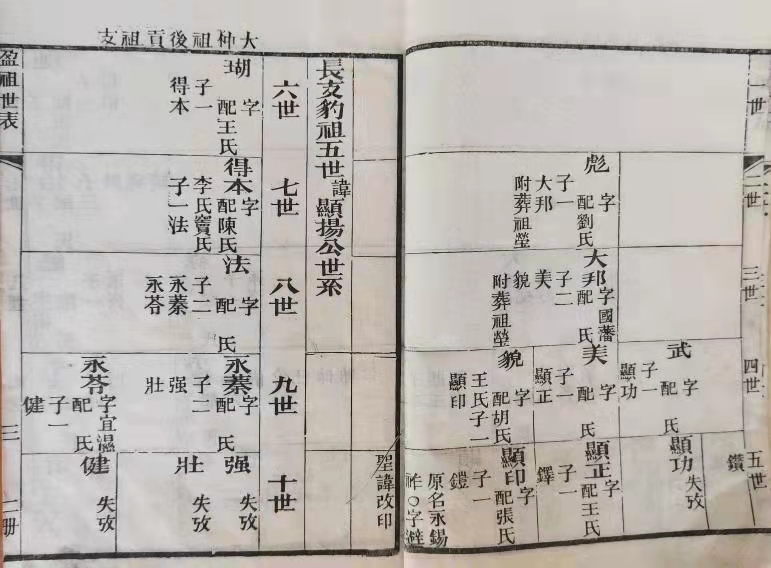 一世
二世
三世
四世
五世
彪
字
配劉氏
子一
大邦
附葬祖塋
大邦
字國藩
配 氏
子二
美 貌
附葬祖塋
武
字
配 氏
子一
顯功
美
字
配 氏
子一
顯正
貌
字
配胡氏
王氏子一
顯印
鑽
顯功
失攷
顯正
字
配王氏
子一
鐸
顯印
字
配張氏
子一
鎧
原名永錫
祚○字避
聖諱改印
大仲祖後貢祖支
長支豹祖五世諱顯揚公世系
六世
七世
八世
九世
十世
瑚
字
配王氏
子一
得本
得本
字
配陳氏
李氏竇氏
子一法
法
字
配 氏
子二
永蓁
永苓
永蓁
字
配 氏
子二
强
壯
永苓
字宜溫
配 氏
子一
健
强
失攷
壯
失攷
健
失攷
盈祖世表
三
一册